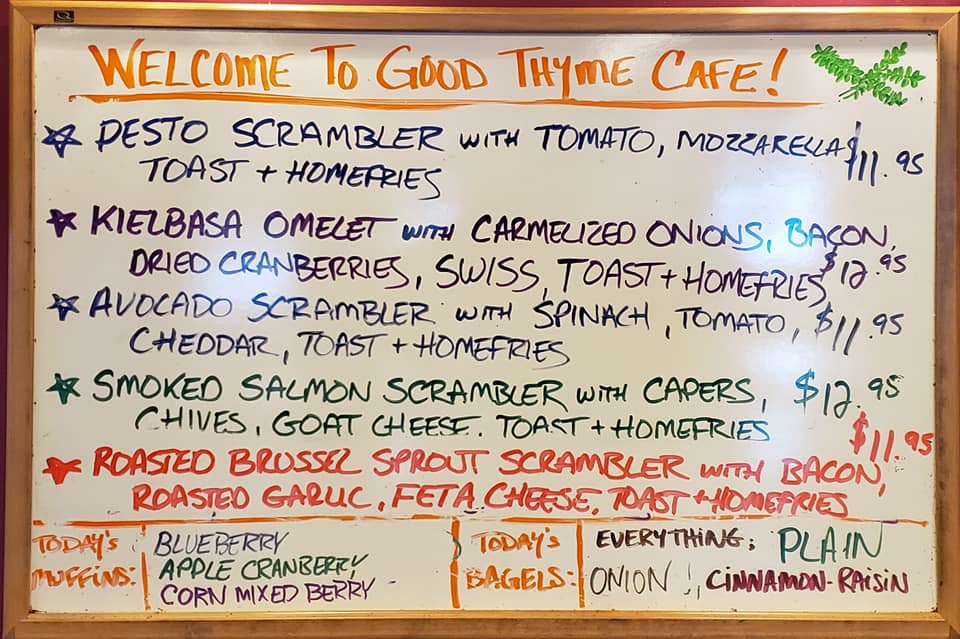 WELCOME TO GOOD THYME CAFE!
PESTO SCRAMBLER WITH TOMATO, MOZZARELLA $11.95
TOAST + HOMEFRIES
KIELBASA OMELET WITH CARMELIZED ONIONS, BACON,
DRIED CRANBERRIES, SWISS, TOAST + HOMEFRIES $12.95
AVOCADO SCRAMBLER WITH SPINACH, TOMATO, $11.95
CHEDDAR, TOAST + HOMEFRIES
SMOKED SALMON SCRAMBLER WITH CAPERS, $12.95
CHIVES, GOAT CHEESE. TOAST + HOMEFRIES
$11.95
ROASTED BRUSSEL SPROUT SCRAMBLER WITH BACON,
ROASTED GARLIC, FETA CHEESE, TOAST + HOMEFRIES
TODAY'S MUFFINS:
BLUEBERRY
APPLE CRANBERRY
CORN MIXED BERRY
TODAY'S BAGELS:
EVERYTHING; PLAIN
ONION, CINNAMON-RAISIN